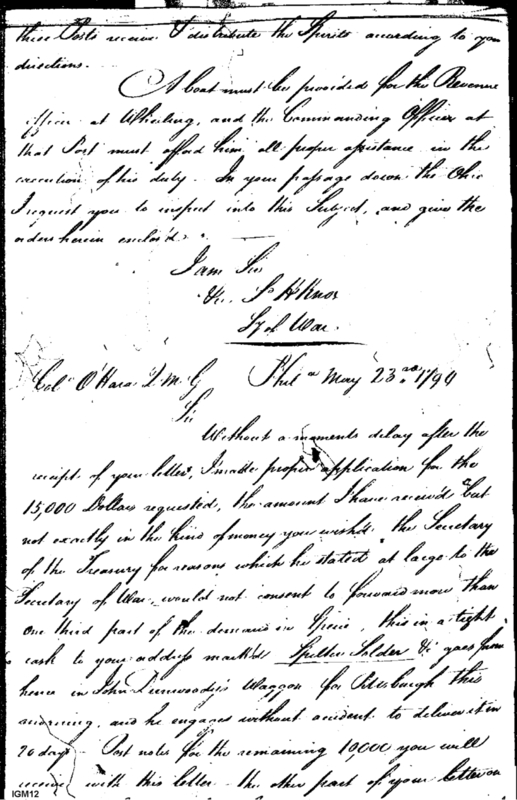 these Posts receive & distribute the Spirits according to your
directions.
A boat must be provided for the Revenue
officer at Wheeling, and the Commanding Officer at
that Post must afford him all proper assistance in the
execution of his duty. In your passage down the Ohio
I request you to inspect into this Subject, and give the
orders herein enclos'd.
I am Sir
&c. S^d H Knox
Sy of War.
Col^o O'Hara Q. M. G Phil^a May 23^rd 1794
Sir
Without a moments delay after the
receipt of your letter, I made proper application for the
15,000 Dollars requested, the amount I have receiv'd but
not exactly in the kind of money you wish'd. the Secretary
of the Treasury for reasons which he stated at large to the
Secretary of War, would not consent to forward more than
one third part of the demand in Specie, this in a tight
cask to your address mark'd Spelter Solder &c goes from
hence in John Dunwoody's Waggon for Pittsburgh this
morning, and he engages without accident to deliver it in
20 days - Post notes for the remaining 10,000 you will
receive with this letter - the other part of your letter on
IGM12